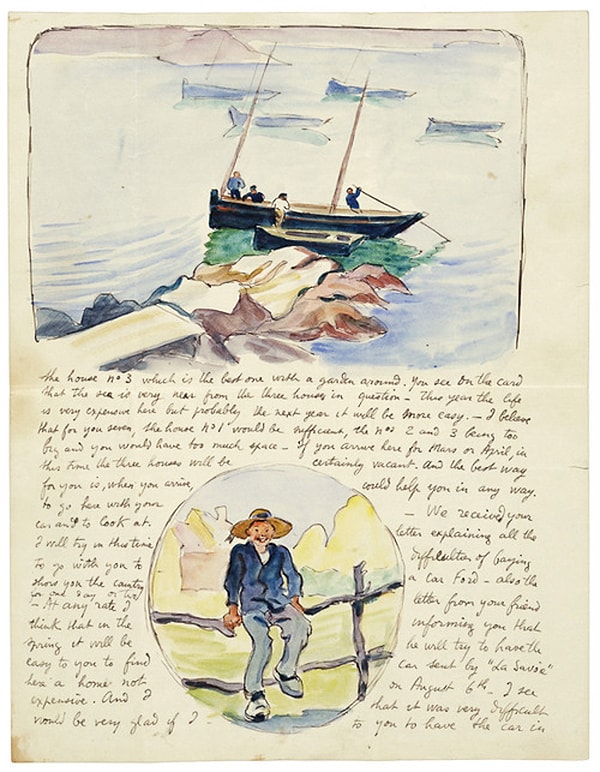 the house nº 3 which is the best one with a garden around. You see on the card
that the sea is very near from the three houses in question – This year the life
is very expensive here but probably the next year it will be more easy. – I believe
that for you seven, the house nº 1 would be sufficient, the nos 2 and 3 being too
big and you would have too much space – If you arrive here for Mars or April, in
this time the three houses will be certainly vacant. And the best way
for you is, when you arrive,
to go here with your
car and to look at.
I will try in this time
to go with you to
show you the country
for one day or two
– At any rate I
think that in the
spring it will be
easy to you to find
here a home not
expensive. And I
would be very glad if I –
could help you in any way.
– We received your
letter explaining all the
difficulties of buying
a car Ford – also the
letter from your friend
informing you that
he will try to have the
car sent by "La Savoie"
on August 6th – I see
that it was very difficult
to you to have the car in